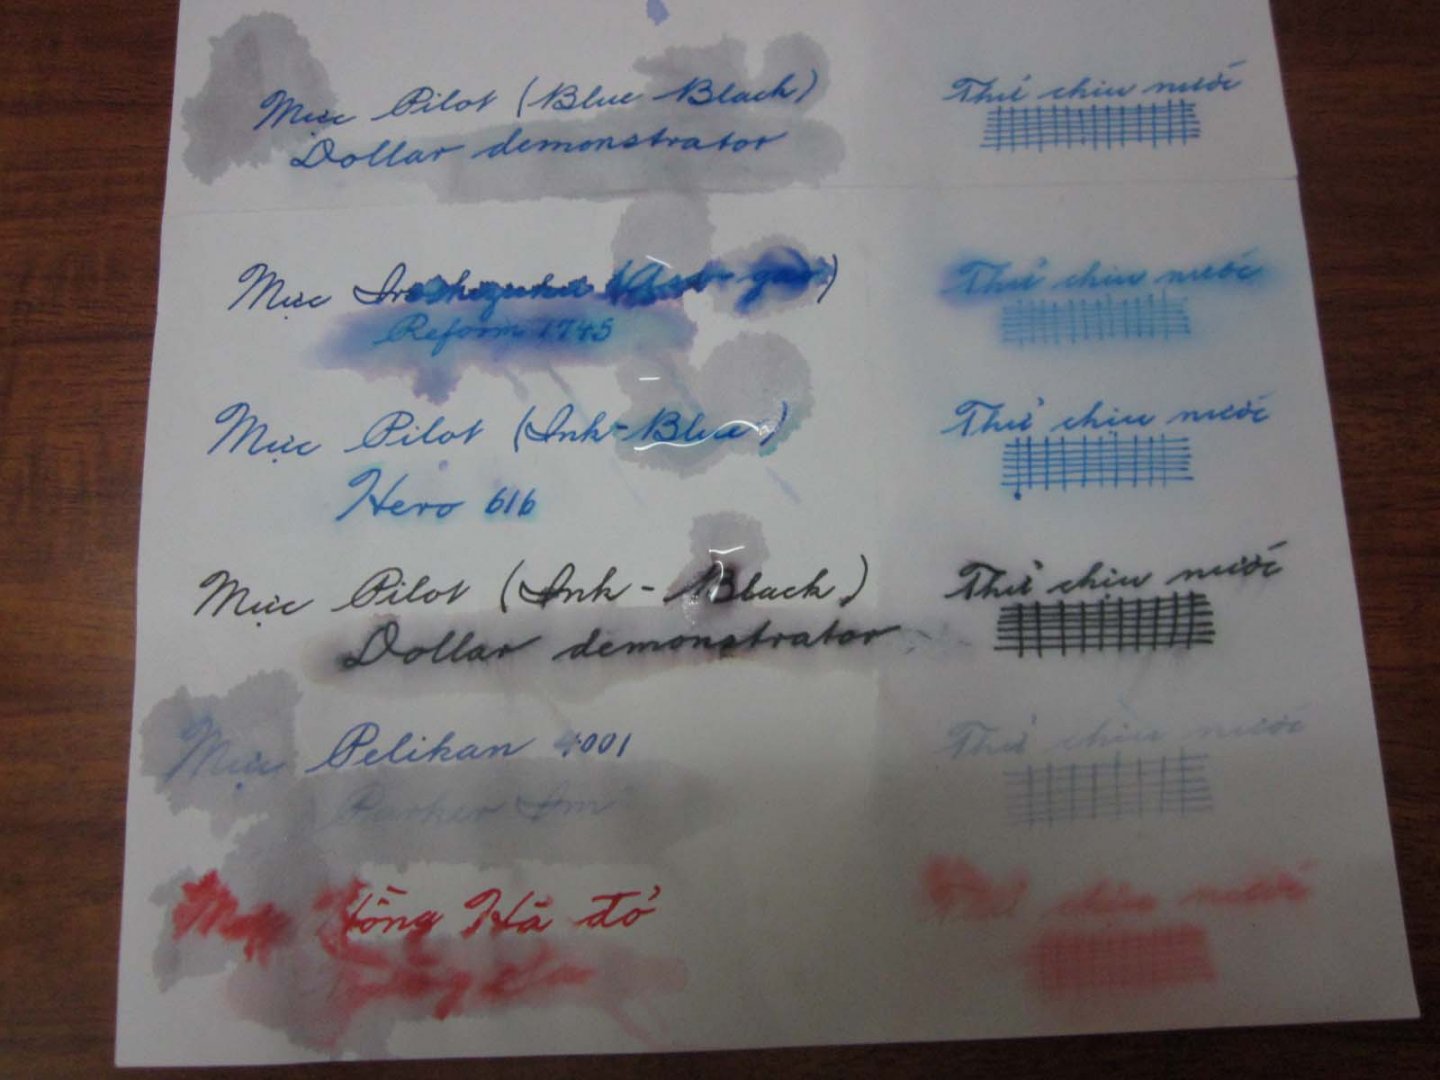 Mực Pilot (Blue-Black)
Thử chịu nước
Dollar demonstrator
Mực Iroshizuku
Thử chịu nước
Reform 1745
Mực Pilot (Ink-Blue)
Thử chịu nước
Hero 616
Mực Pilot (Ink-Black)
Thử chịu nước
Dollar demonstrator
Mực Pelikan 4001
Thử chịu nước
Parker Im
Mực Hồng Hà đỏ
Thử chịu nước